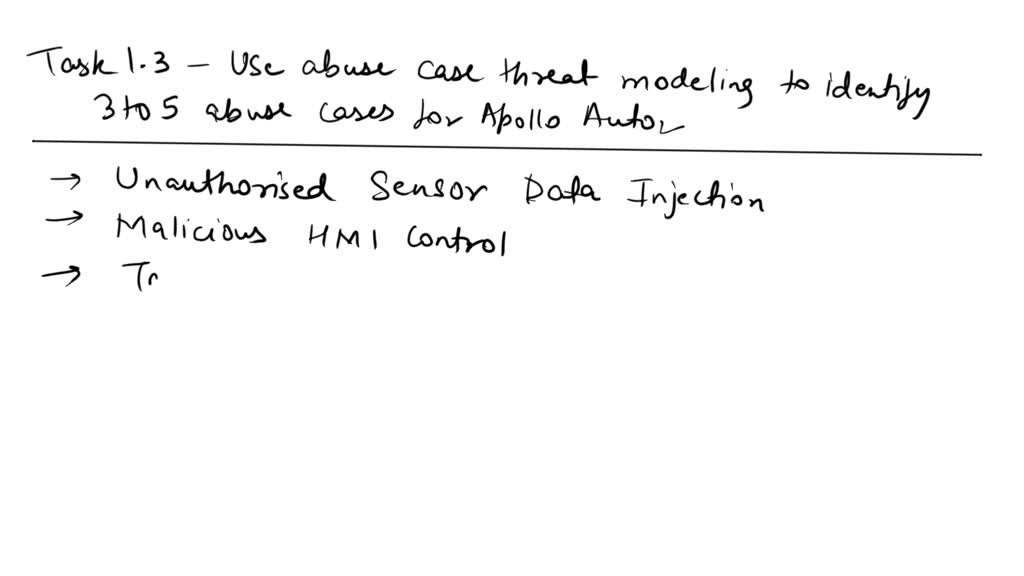 Task 1.3 – Use abuse case threat modeling to identify
3 to 5 abuse cases for Apollo Auto
→ Unauthorised Sensor Data Injection
→ Malicious HMI Control
→ Tr